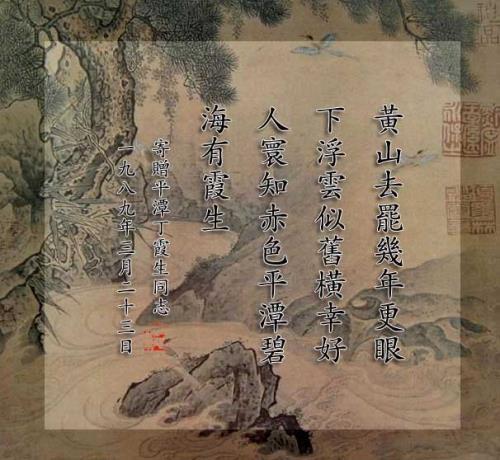 黃山去罷幾年更眼
下浮雲似舊橫幸好
人寰知赤色平潭碧
海有霞生
寄贈平潭丁霞生同志
一九八九年三月二十三日